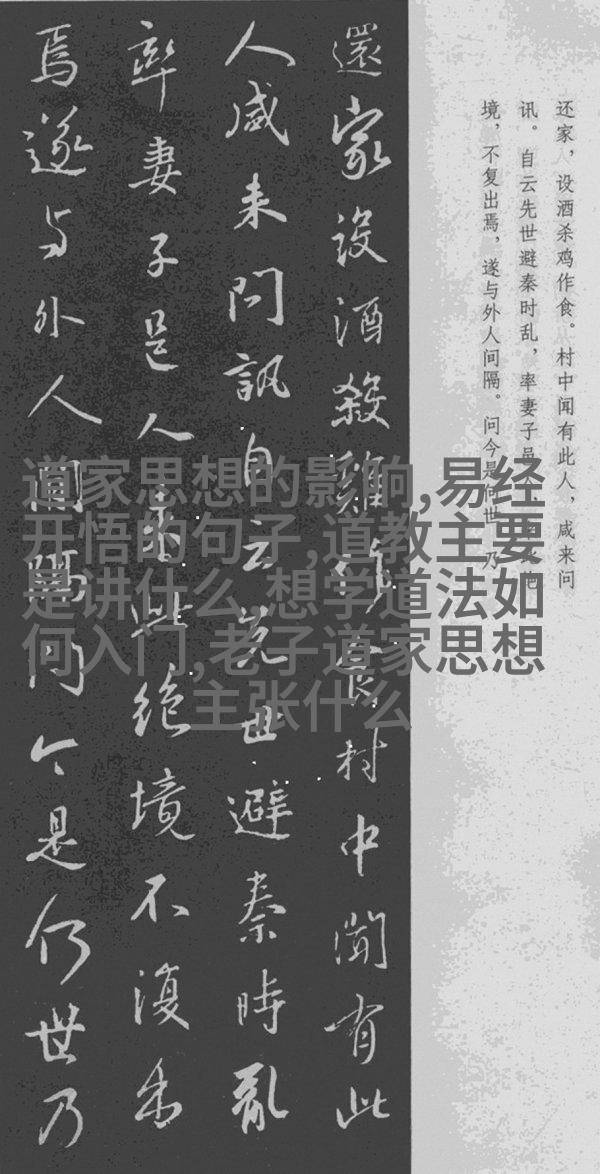 还家，设酒杀鸡作食。村中闻有此人，咸来问
讯。自云先世避秦时乱，率妻子邑
境，不复出焉，遂与外人间隔。问今是何世，乃
還家設酒殺雞作食村中聞有此
人咸来問訊自云先世避秦時亂
率妻子邑人来此絶境不復出
焉遂与外人間隔问今是何世乃
道家思想的影响,易经
开悟的句子,道教主要
是讲什么,想学道法如
何入门,老子道家思想
主张什么